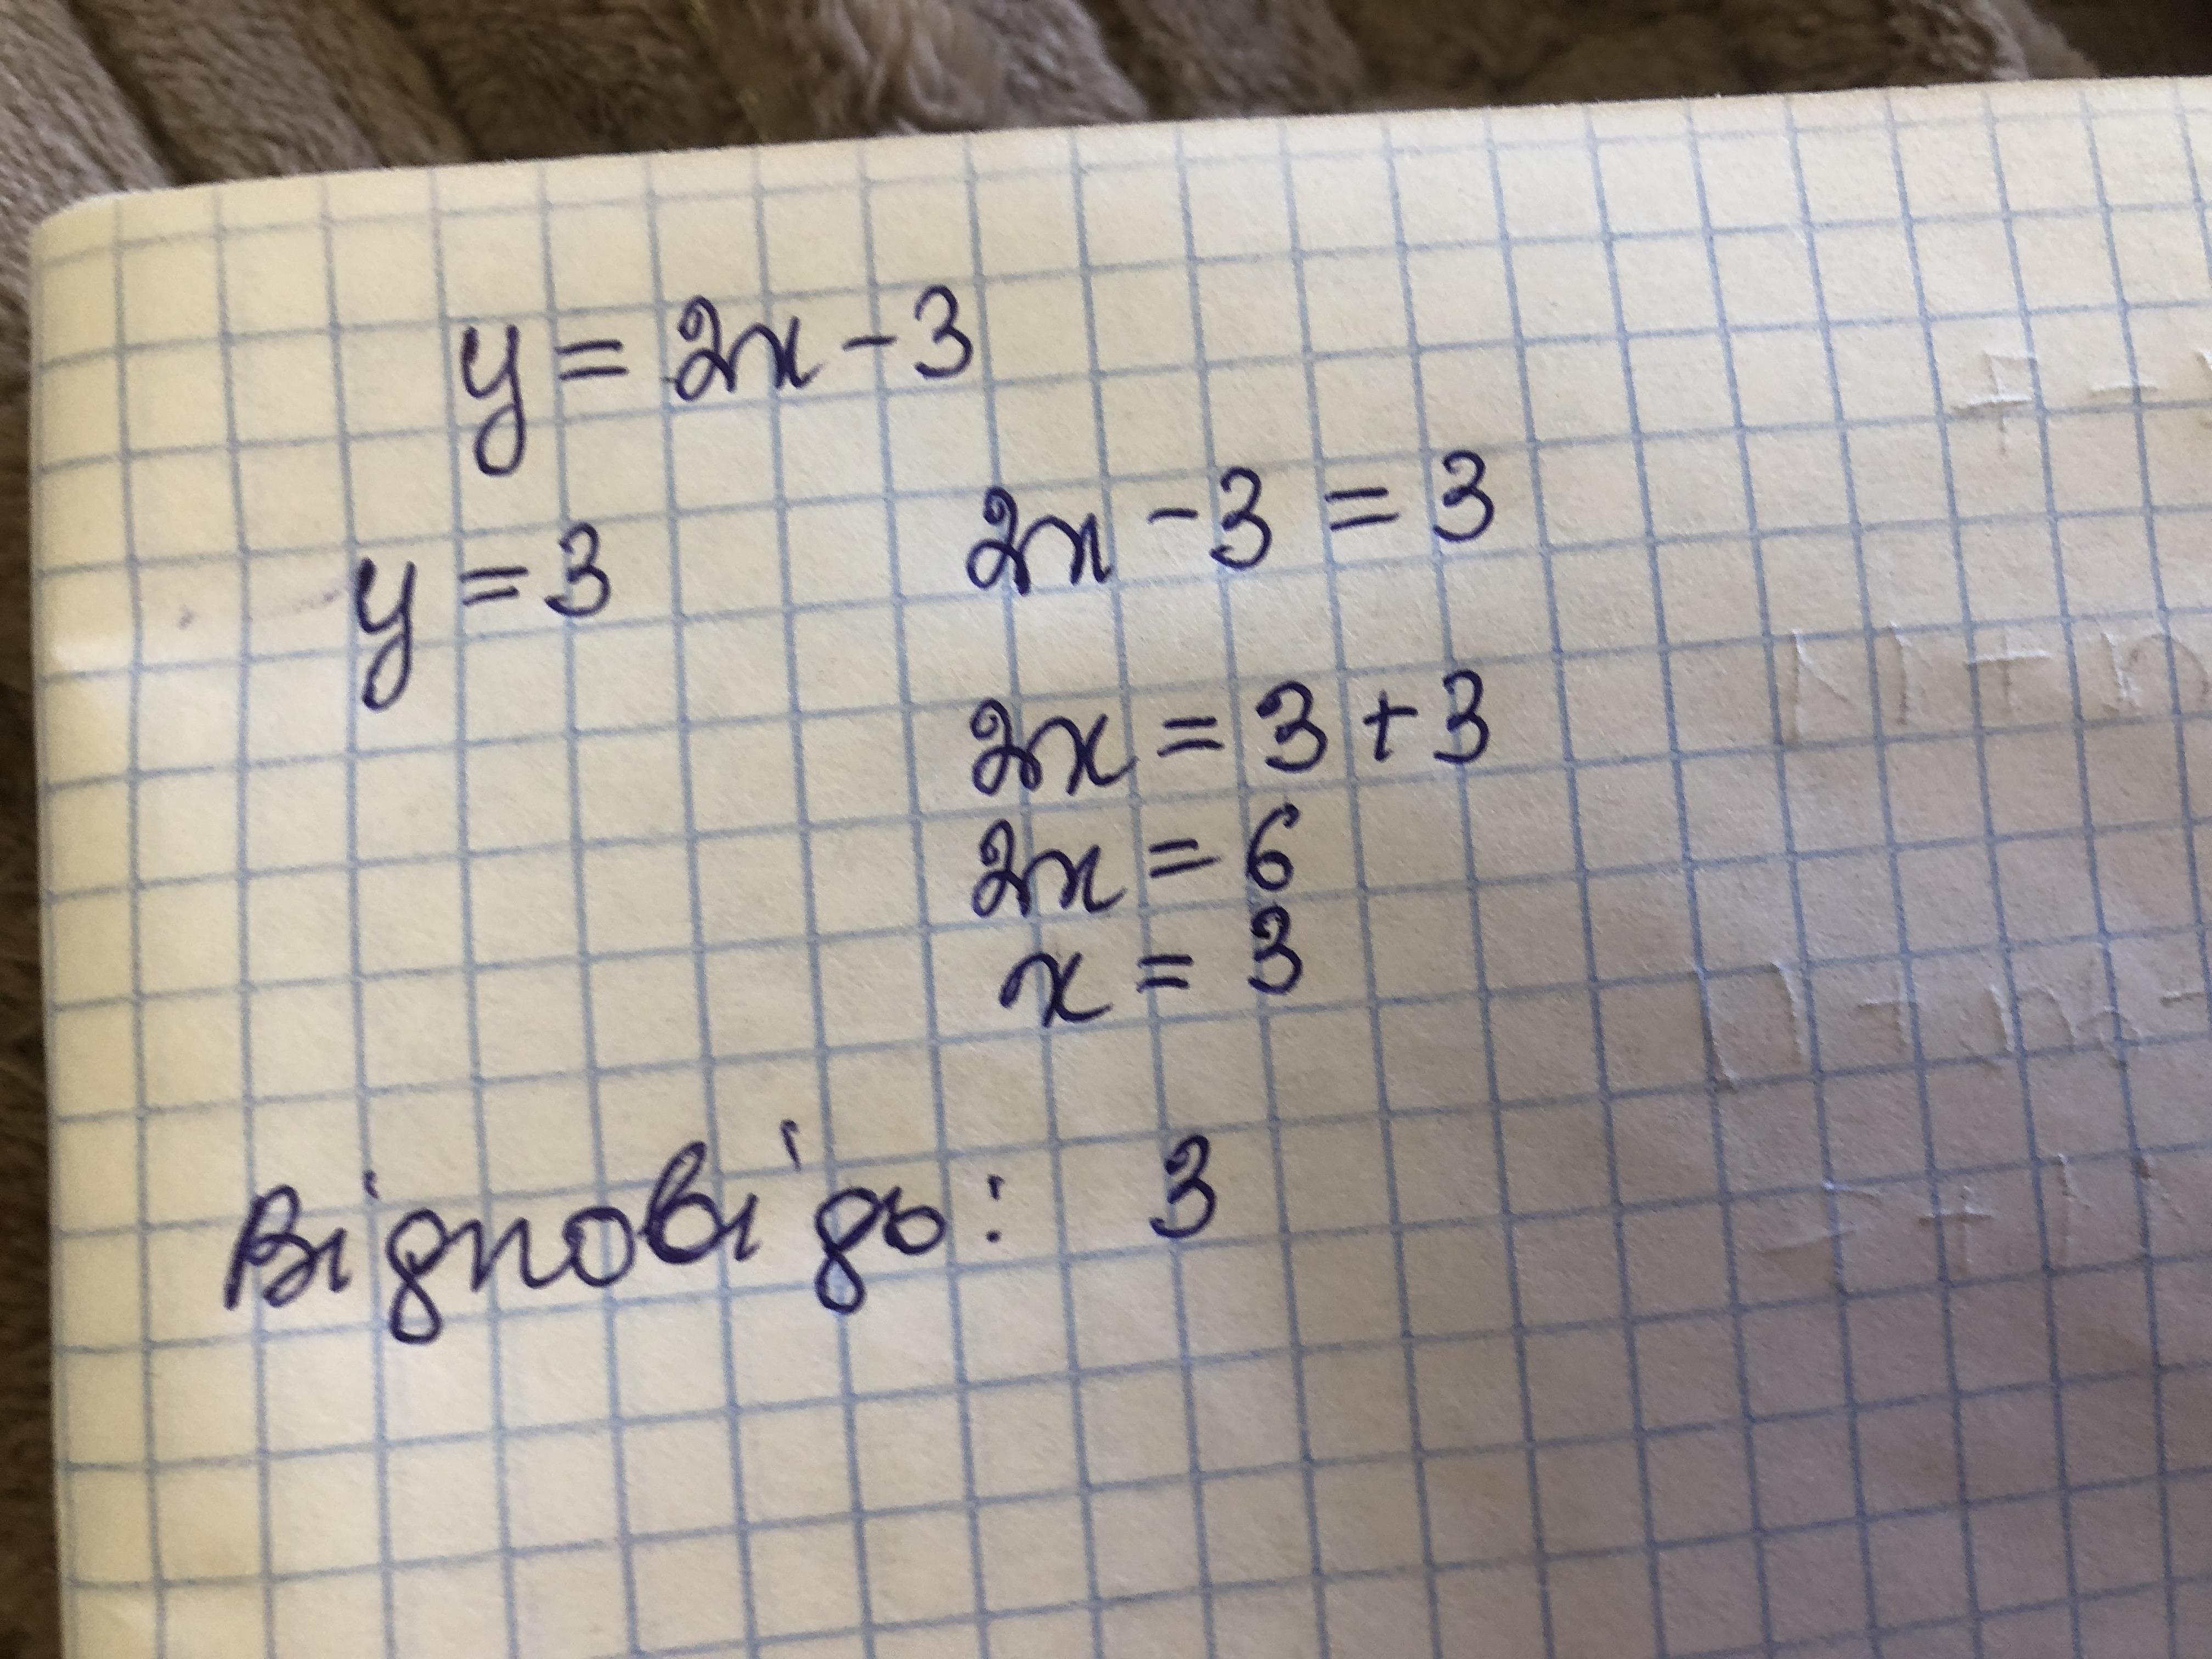 y = 2x - 3
y = 3
2x - 3 = 3
2x = 3 + 3
2x = 6
x = 3
Відповідь: 3